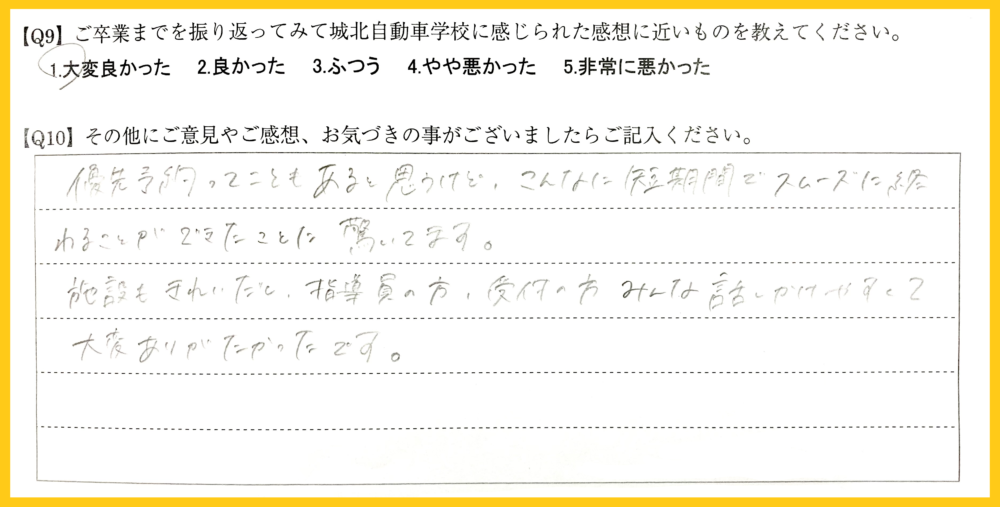 【Q9】ご卒業までを振り返ってみて城北自動車学校に感じられた感想に近いものを教えてください。
1.大変良かった 2.良かった 3.ふつう 4.やや悪かった 5.非常に悪かった
【Q10】その他にご意見やご感想、お気づきの事がございましたらご記入ください。
優先予約ってこともあると思うけど、こんなに短期間でスムーズに終
わることができたことに驚いてます。
施設もきれいだし、指導員の方、受付の方みんな話しかけやすくて
大変ありがたかったです。